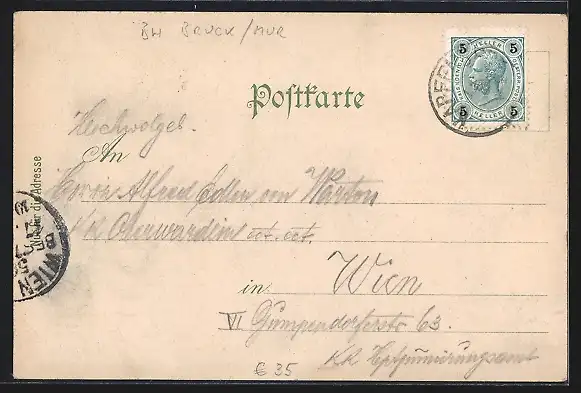 BH BRUCK/MUR
5 HELLER 5
5 HELLER 5
KAPFEN
Postkarte
Hochwolgeb.
An
Herrn Alfred Edlen von
KK Oberwardein ect. ect.
Nur für die Adresse
WIEN
in Wien
VI Gumpendorferstr 63.
KK
€ 35